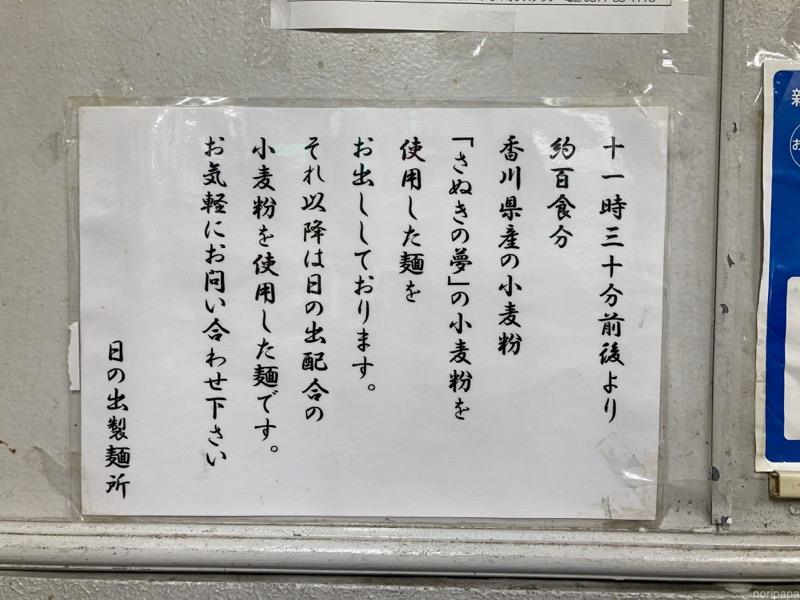 十一時三十分前後より
約百食分
香川県産の小麦粉
「さぬきの夢」の小麦粉を
使用した麺を
お出ししております。
それ以降は日の出配合の
小麦粉を使用した麺です。
お気軽にお問い合わせ下さい
日の出製麺所
新
お
noripapa